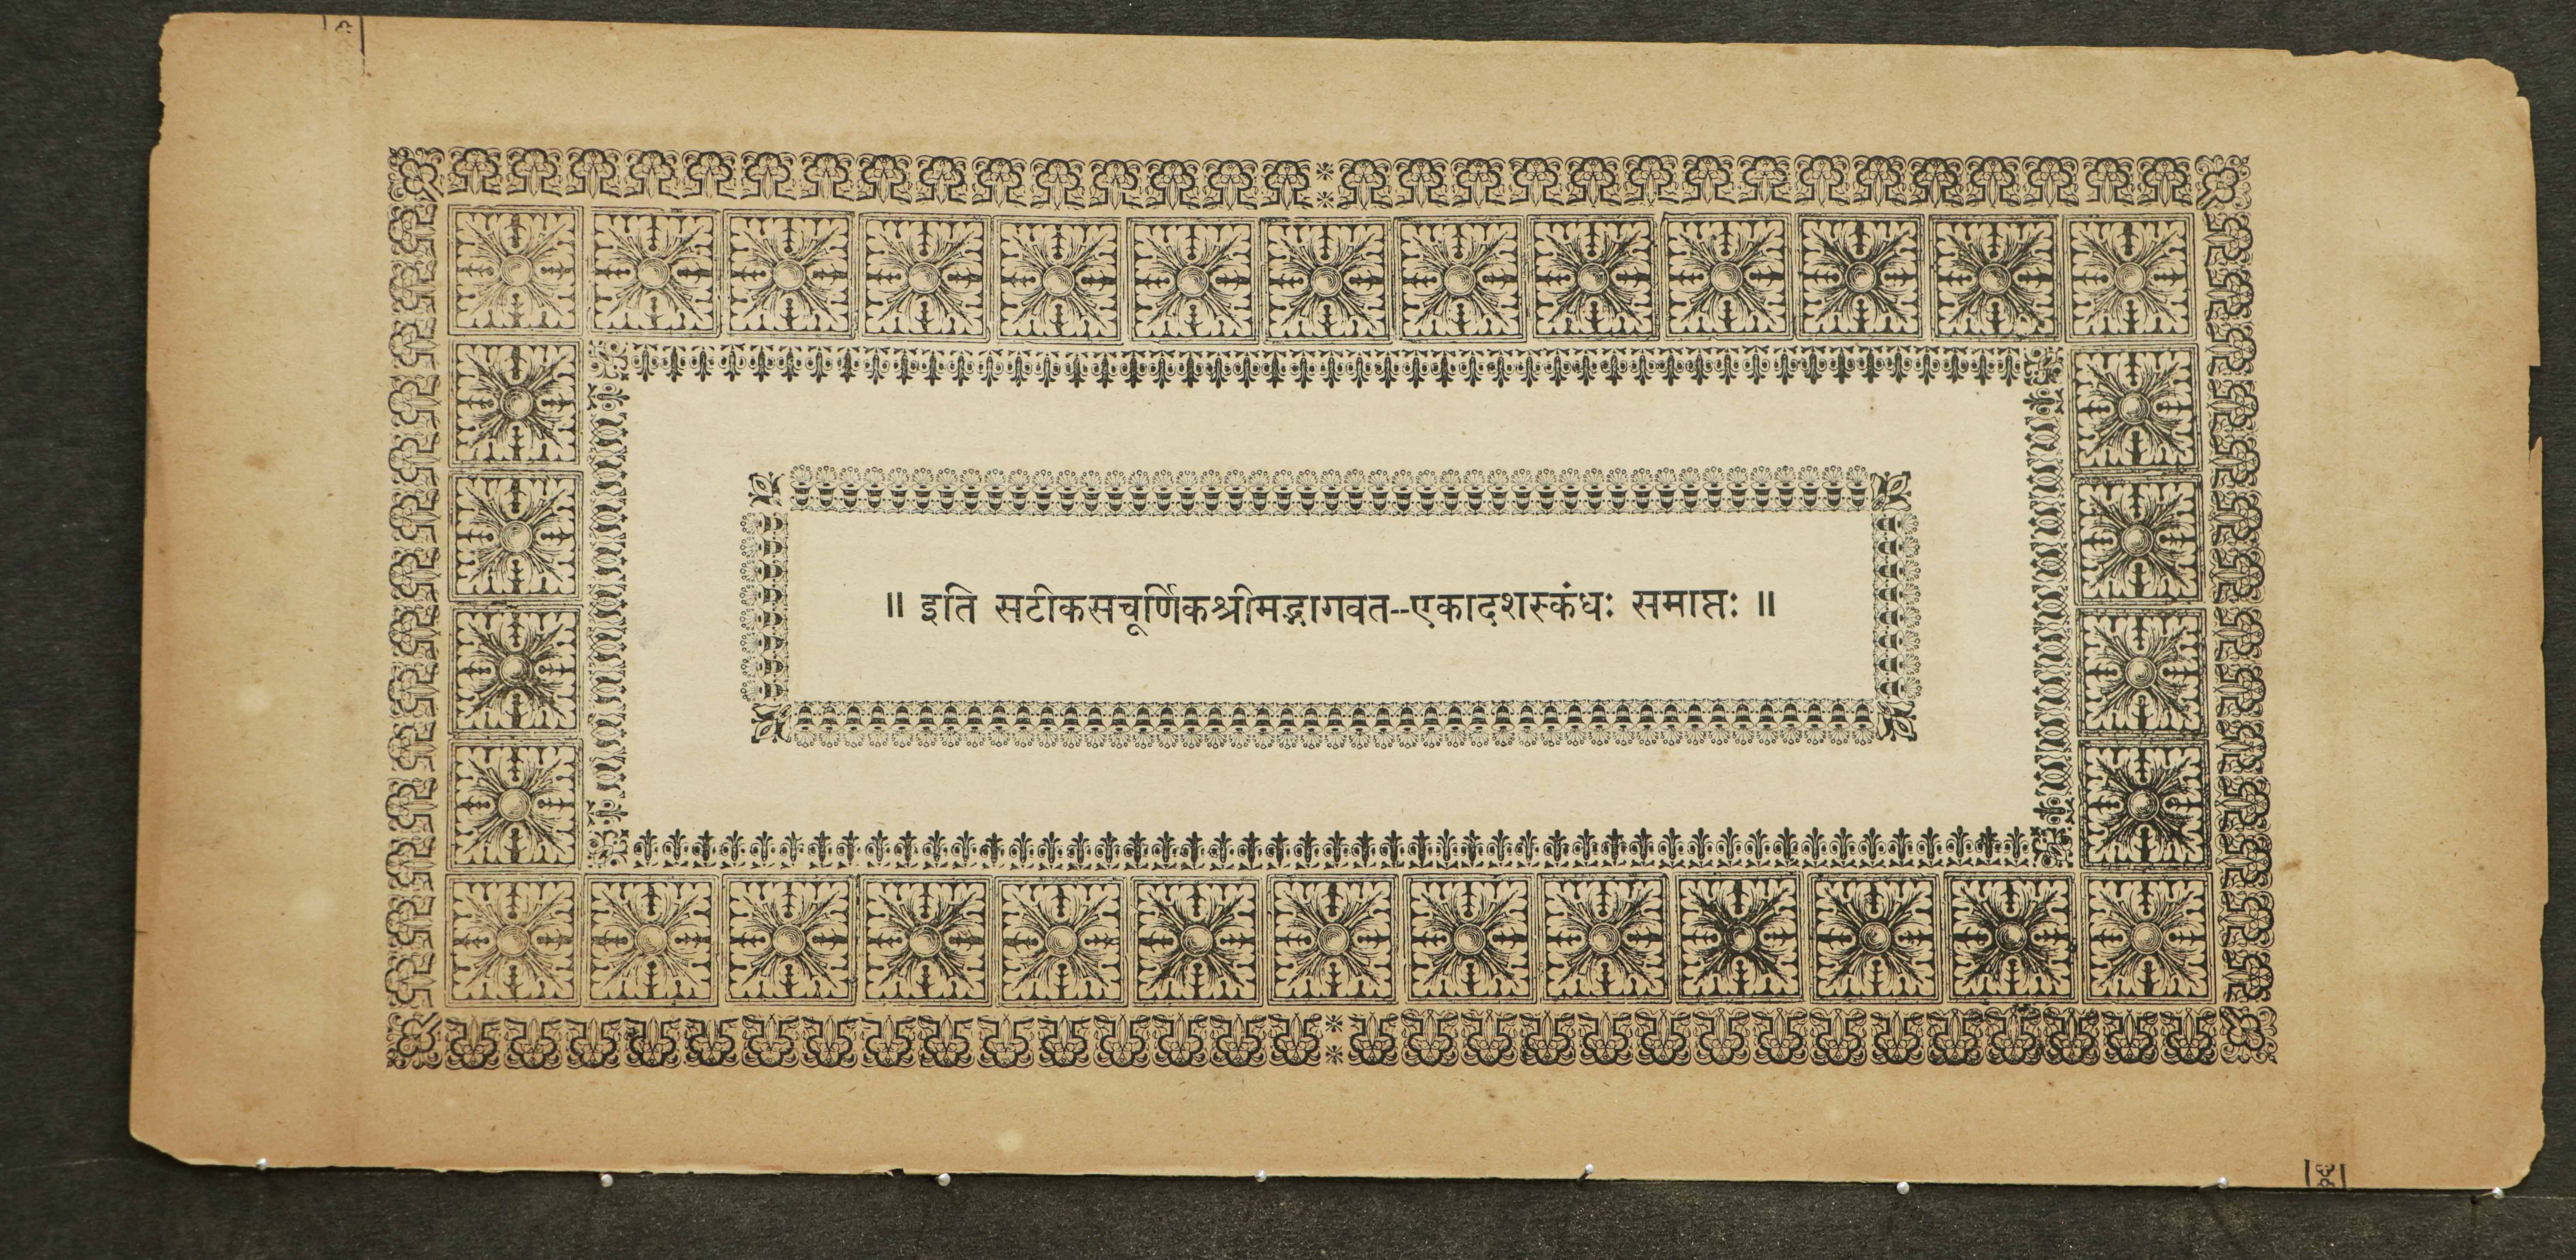 ॥ इति सटीकसचूर्णिकश्रीमद्भागवत--एकादशस्कंधः समाप्तः ॥